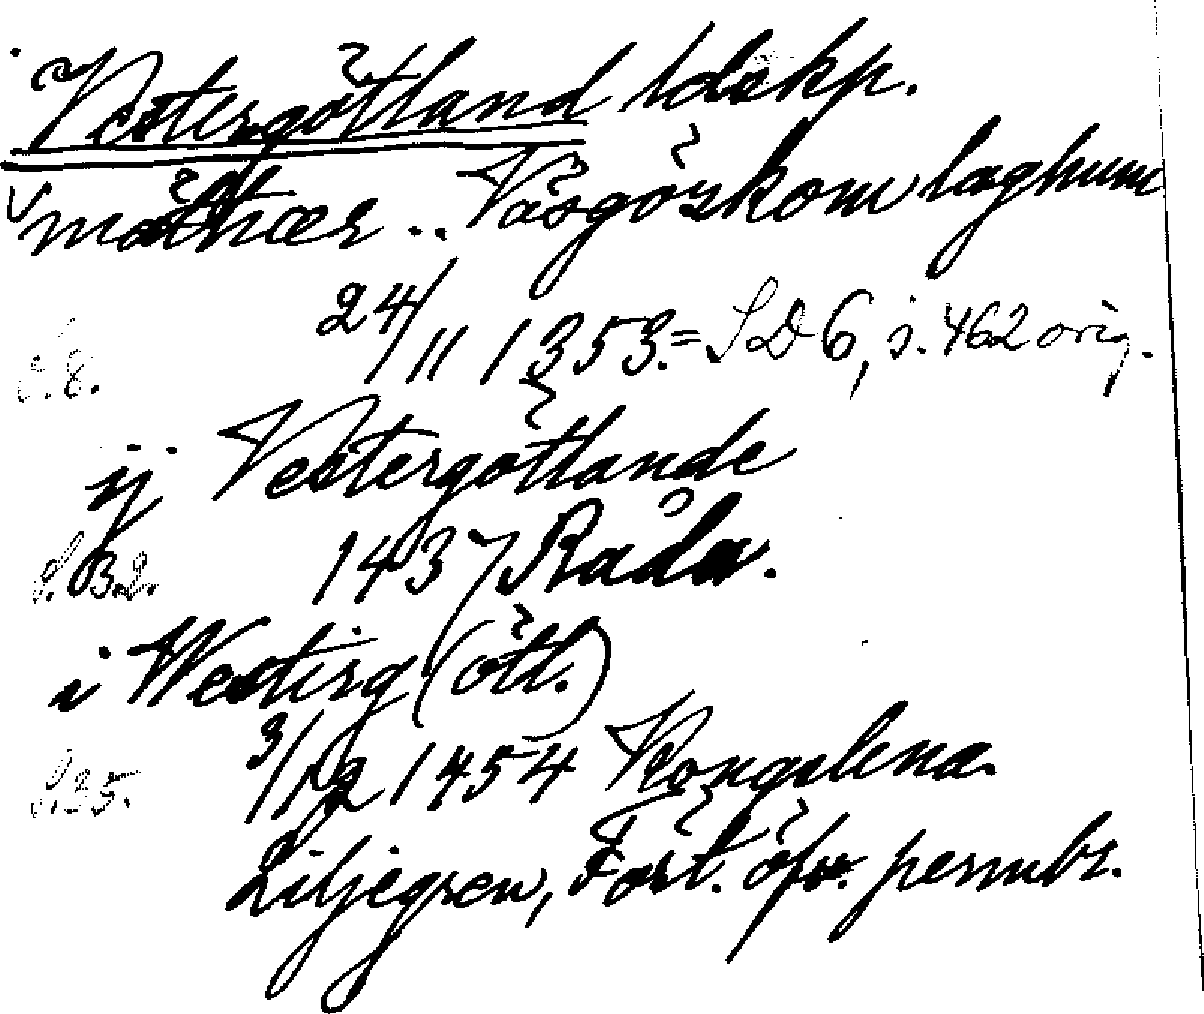 Vestergötland ldskp.
mäþ þæs .. Väsgözkom laghum
24/11 1353. = SD 6, s. 462 orig.
S. 8.
ij Vestergötlande
S. 32. 1437 Råda.
i Westirg (ötl.)
S. 35. 3/12 1454 Kongslena.
Liljegren, Fört. öfv. permbr.